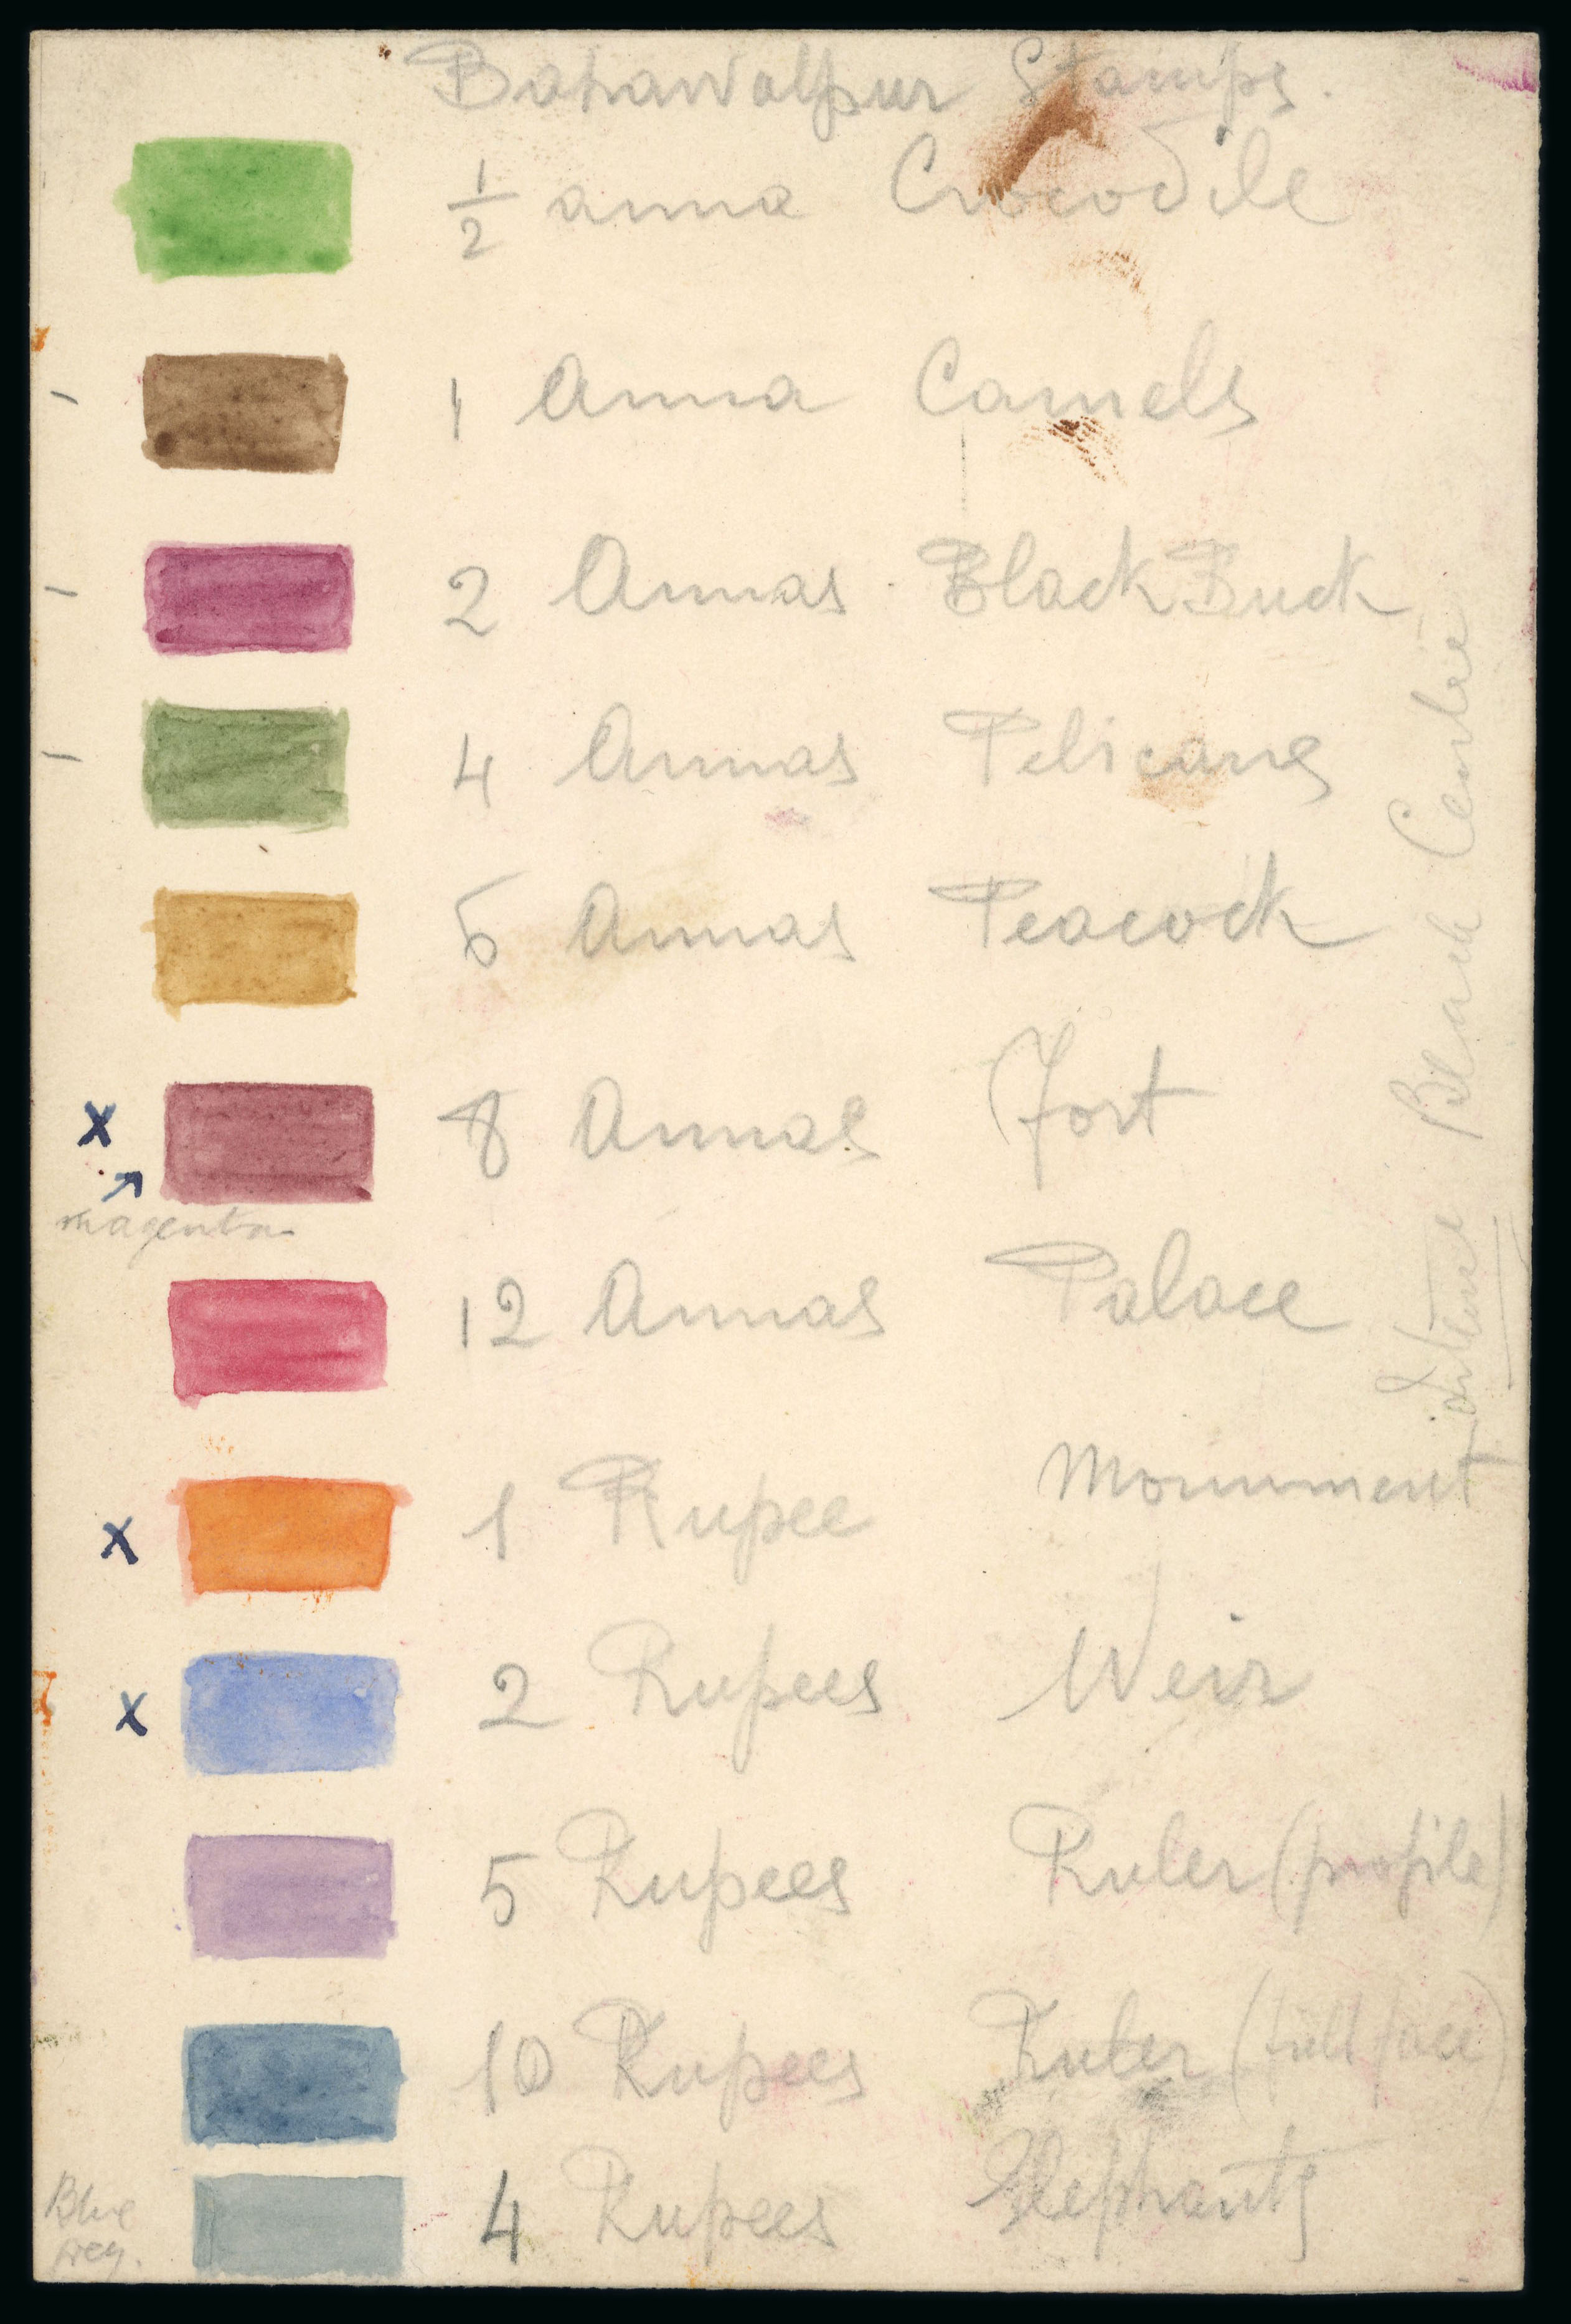 Bahawalpur Stamps.
1/2 anna Crocodile
1 Anna Camels
2 Annas Black Buck
4 Annas Pelicans
6 Annas Peacock
x 8 Annas Fort
magenta
12 Annas Palace
x 1 Rupee Monument
x 2 Rupees Weir
5 Rupees Ruler (profile)
10 Rupees Ruler (full face)
4 Rupees Elephants
Blue
Grey.
intense Black Centre